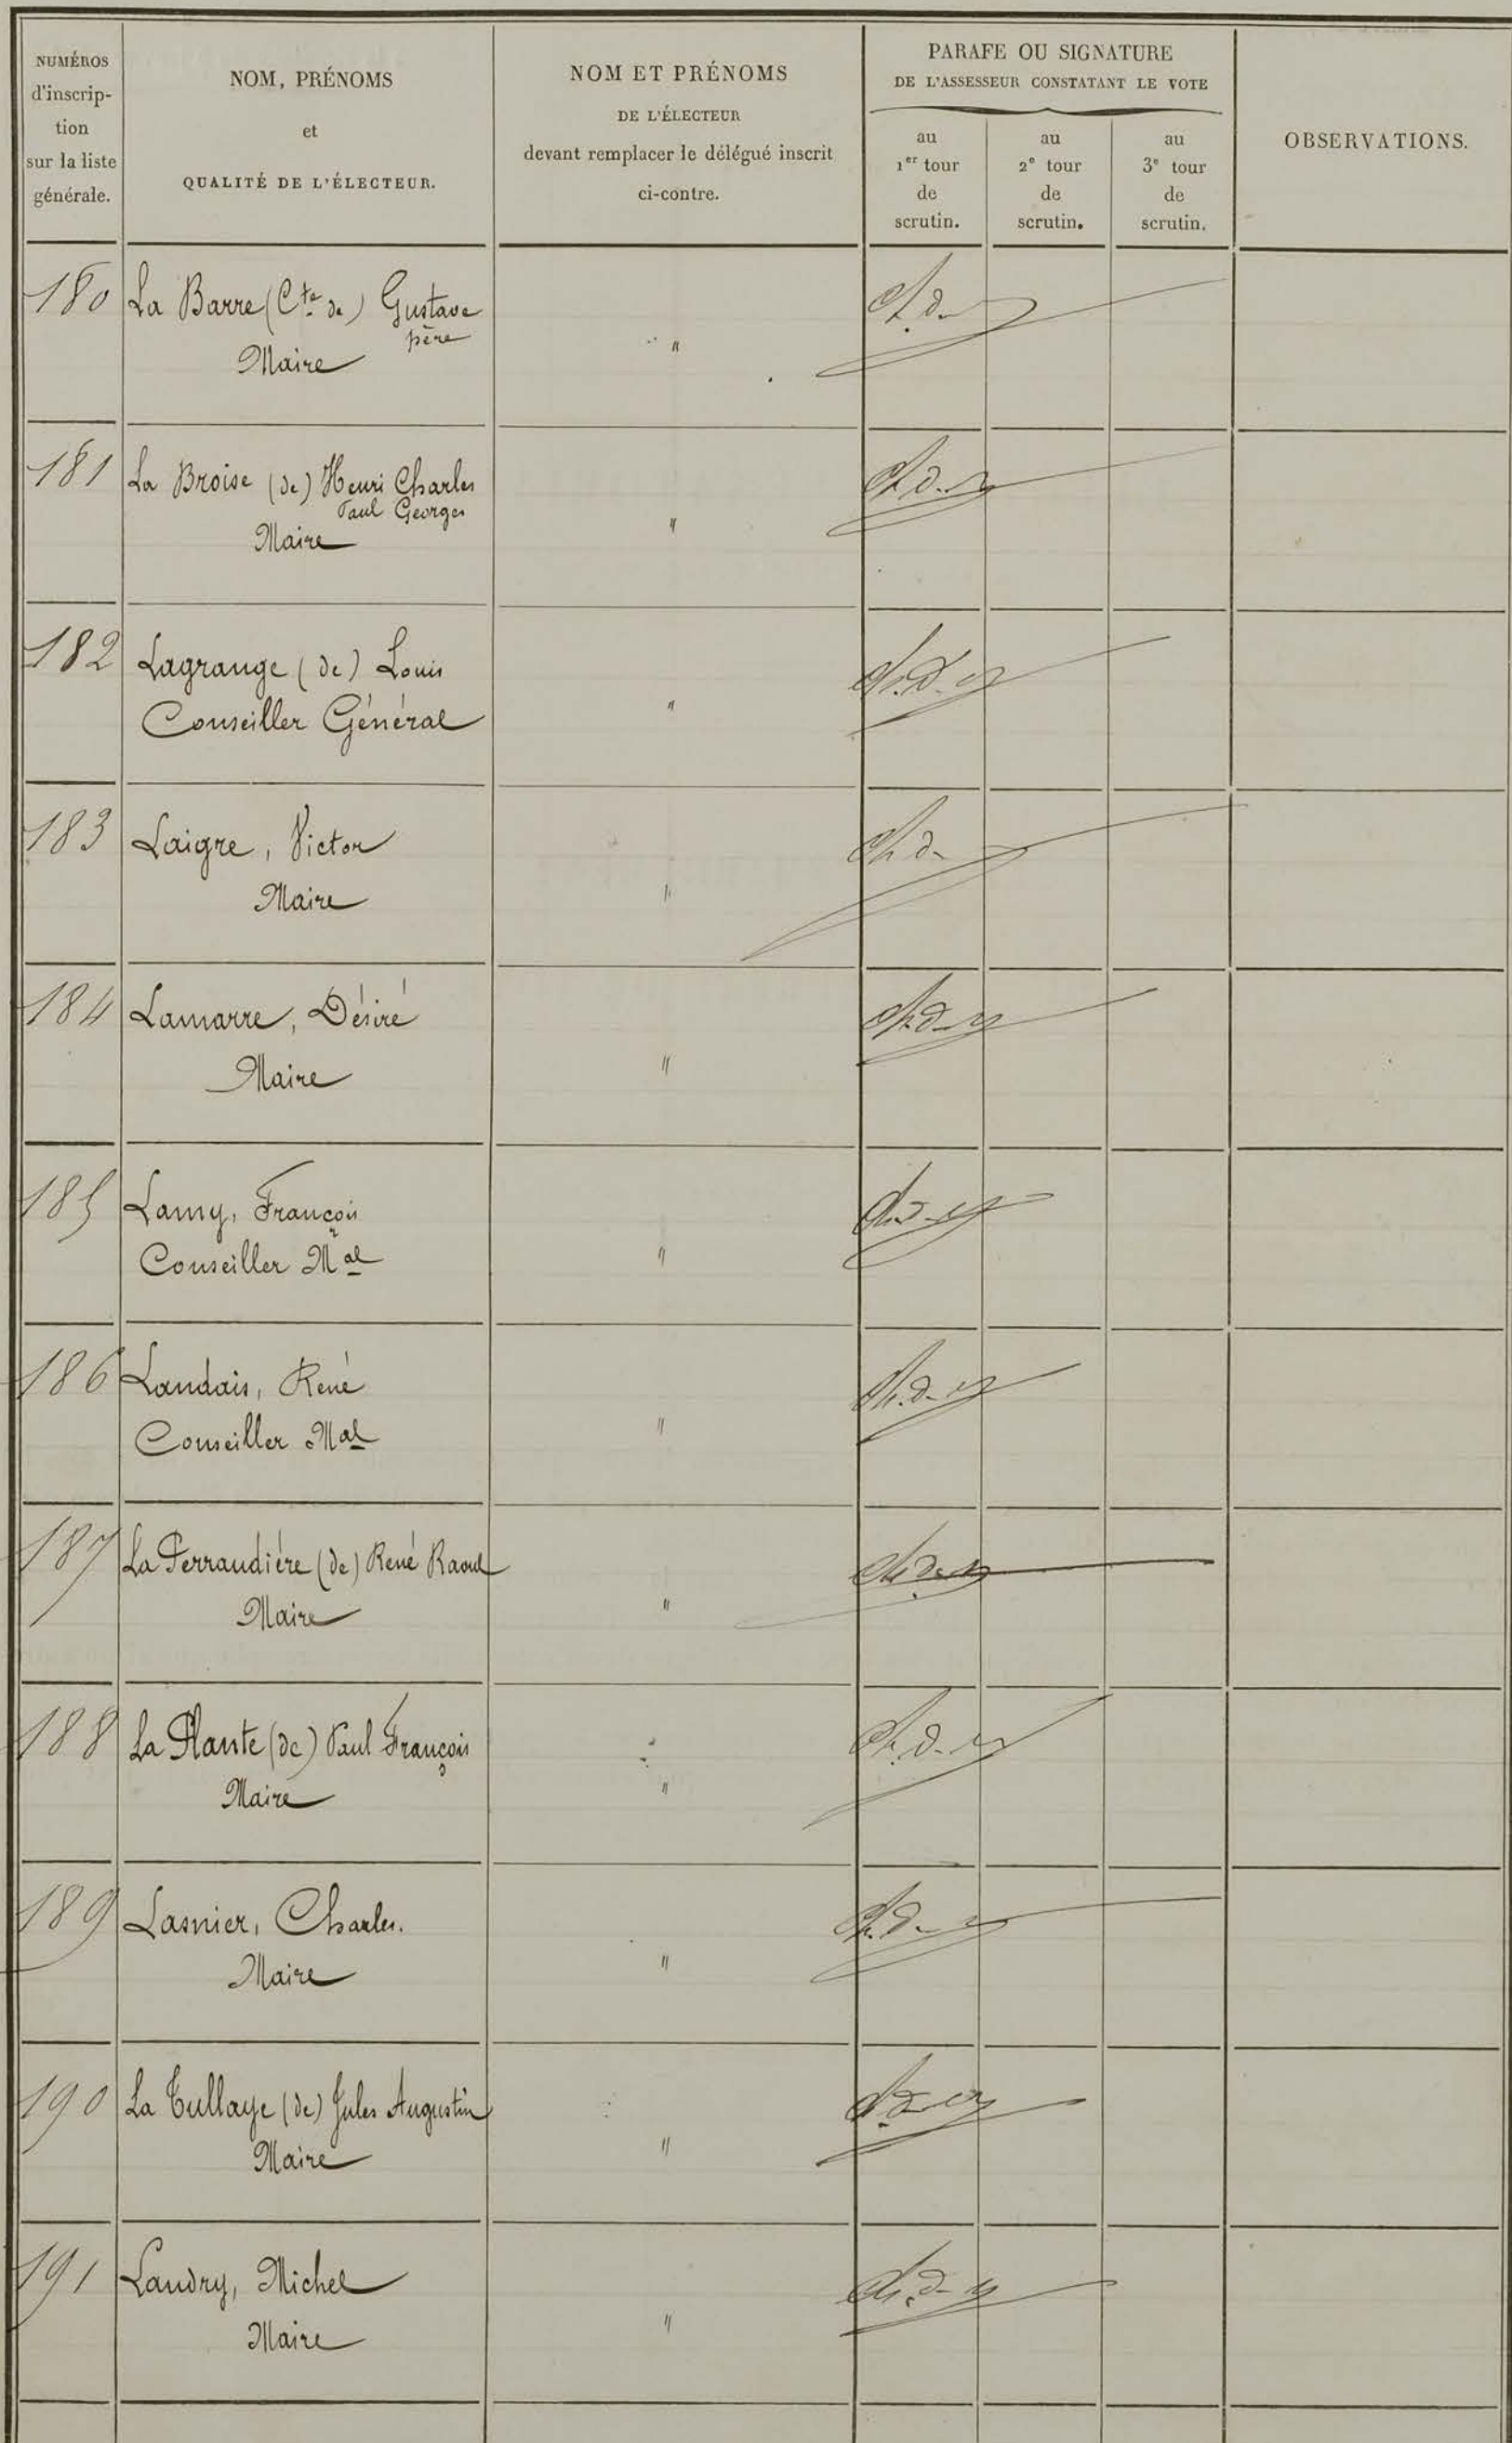 NUMÉROS
d'inscrip-
tion
sur la liste
générale.
NOM, PRÉNOMS
et
QUALITÉ DE L'ÉLECTEUR.
NOM ET PRÉNOMS
DE L'ÉLECTEUR
devant remplacer le délégué inscrit
ci-contre.
PARAFE OU SIGNATURE
DE L'ASSESSEUR CONSTATANT LE VOTE
au
1er tour
de
scrutin.
au
2e tour
de
scrutin.
au
3e tour
de
scrutin.
OBSERVATIONS.
180 La Barre (Cte de) Gustave
père
Maire "
181 La Broise (de) Henri Charles
Paul Georges
Maire "
182 Lagrange (de) Louis
Conseiller Général "
183 Laigre, Victor
Maire "
184 Lamarre, Désiré
Maire "
185 Lamy, François
Conseiller Mal "
186 Landais, René
Conseiller Mal "
187 La Perraudière (de) René Raoul
Maire "
188 La Plante (de) Paul François
Maire "
189 Lasnier, Charles.
Maire "
190 La Tullaye (de) Jules Augustin
Maire "
191 Landry, Michel
Maire "